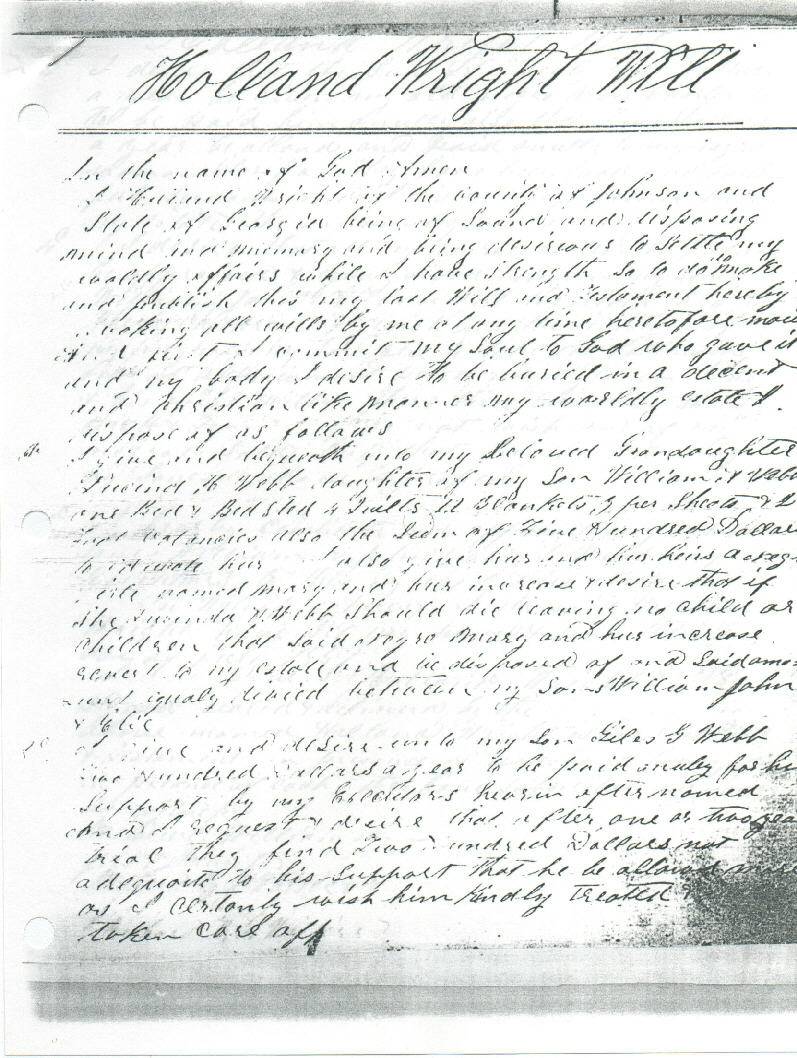 Holland Wright Will
In the name of God Amen
I Holland Wright of the county of Johnson and
State of Georgia being of Sound and disposing
mind and memory and being desirous to Settle my
worldly affairs while I have strength So to do make
and publish this my last Will and Testament hereby
all wills by me at any time heretofore
first I commit my Soul to God who gave it
and my body I desire to be buried in a decent
and christian like manner my worldly estate I
dispose of as follows
I give and bequeath unto my beloved
H Webb daughter of my Son William Webb
one Bed & Bedsted 4 Quilts Blankets 3 per Sheets &
also the Sum of Five Hundred Dollar
to educate her I also give her and her heirs a
named Mary and her increase & desire that if
She Lucinda H Webb Should die leaving no child or
children that Said negro Mary and her increase
revert to my estate and be disposed of and Said
equaly divied between my Sons William John
&
I give and desire unto my Son Giles G Webb
Two Hundred Dollars a year to be paid for
Support by my hearin after named
And I request & desire that after one or two
trial they find Two Hundred Dollars not
adequate to his Support that he be allowed
as I certanly wish him Kindly treated &
taken care off